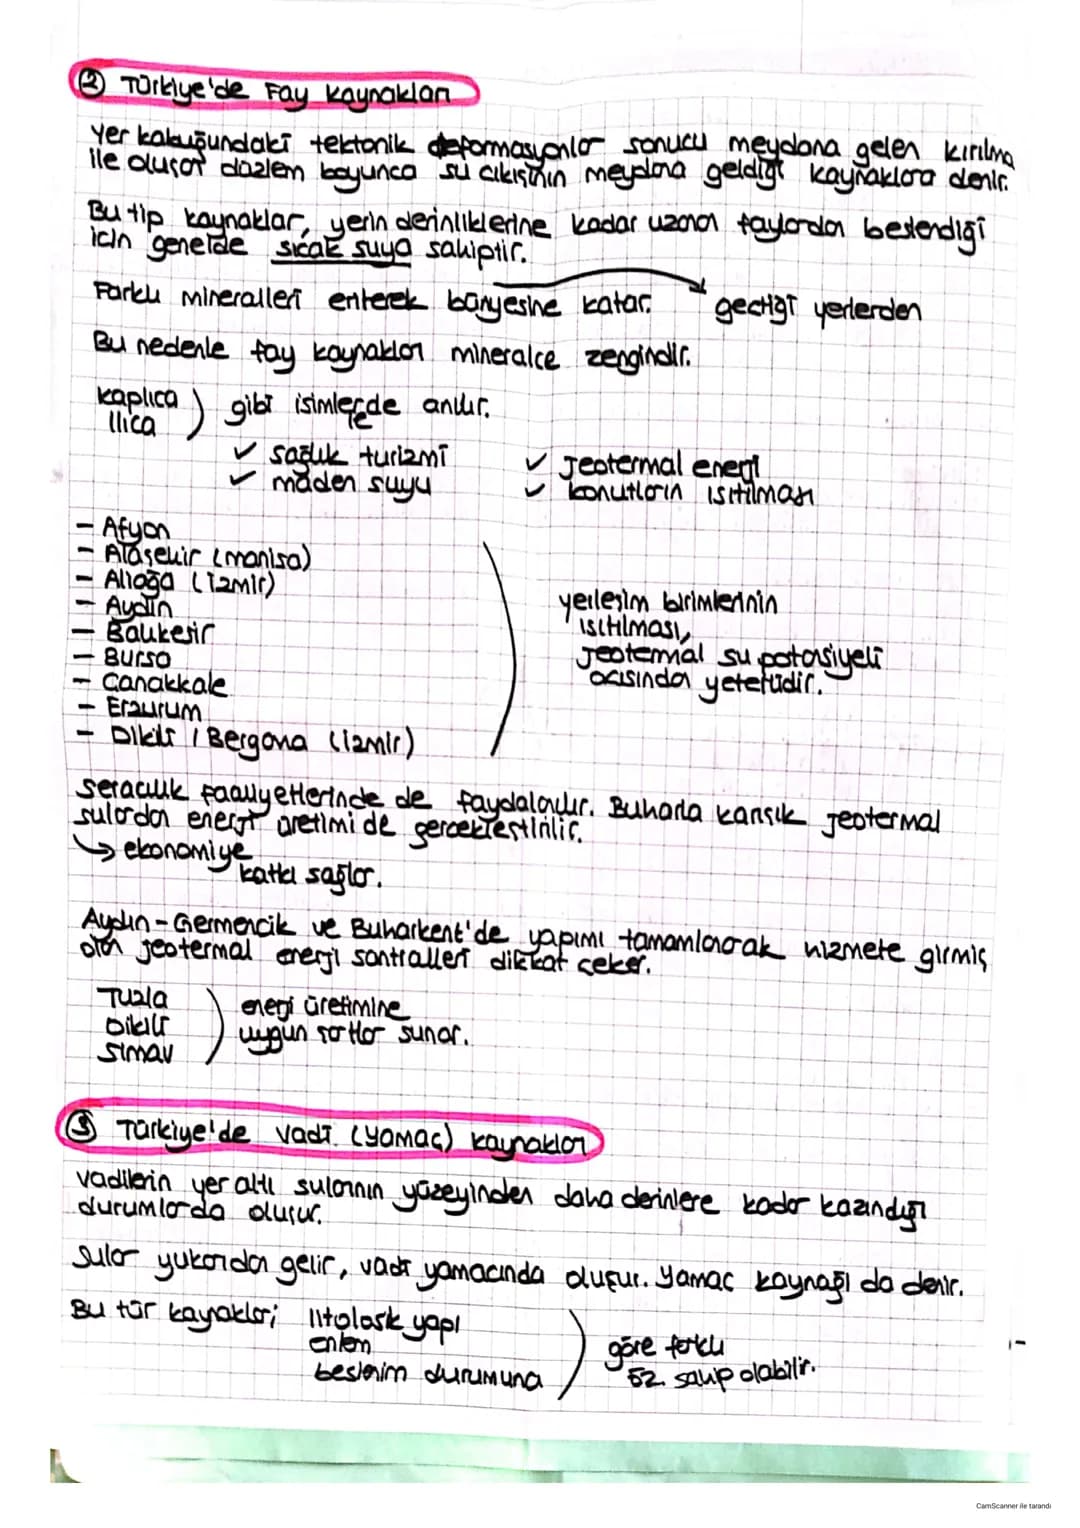 ② Türkiye'de Fay Kaynakları
Yer kabuğundaki tektonik deformasyonlar sonucu meydana gelen kırılma
ile oluşan düzlem boyunca su çıkışının meydana geldiği kaynaklara denir.
Bu tip kaynaklar, yerin derinliklerine kadar uzanan faylardan beslendiği
için genelde sıcak suya sahiptir.
Farklı mineralleri eriterek bünyesine katar. geçtiği yerlerden
Bu nedenle fay kaynakları mineralce zengindir.
kaplıca
ılıca ) gibi isimlerde anılır.
✓ sağlık turizmi ✓ jeotermal enerji
✓ maden suyu ✓ konutların ısıtılması
- Afyon
- Alaşehir (manisa)
- Aliağa (izmir)
- Aydın
- Balıkesir
- Bursa
- Çanakkale
- Erzurum
- Dikili / Bergama (izmir)
yerleşim birimlerinin
ısıtılması,
jeotermal su potansiyeli
açısından yeterlidir.
seracılık faaliyetlerinde de faydalanılır. Buharla karışık jeotermal
sulardan enerji üretimi de gerçekleştirilir.
↳ ekonomiye
katkı sağlar.
Aydın - Germencik ve Buharkent'de yapımı tamamlanarak hizmete girmiş
olan jeotermal enerji santralleri dikkat çeker.
Tuzla
Dikili
Simav
enerji üretimine
uygun şartlar sunar.
③ Türkiye'de Vadi (Yamaç) kaynakları
vadilerin yer altı sularının yüzeyinden daha derinlere kadar kazındığı
durumlarda oluşur.
Sular yukarıdan gelir, vadi yamacında oluşur. Yamaç kaynağı da denir.
Bu tür kaynaklar; litolojik yapı
enlem
beslenim durumuna
göre farklı
öz. sahip olabilir.
CamScanner ile tarandı